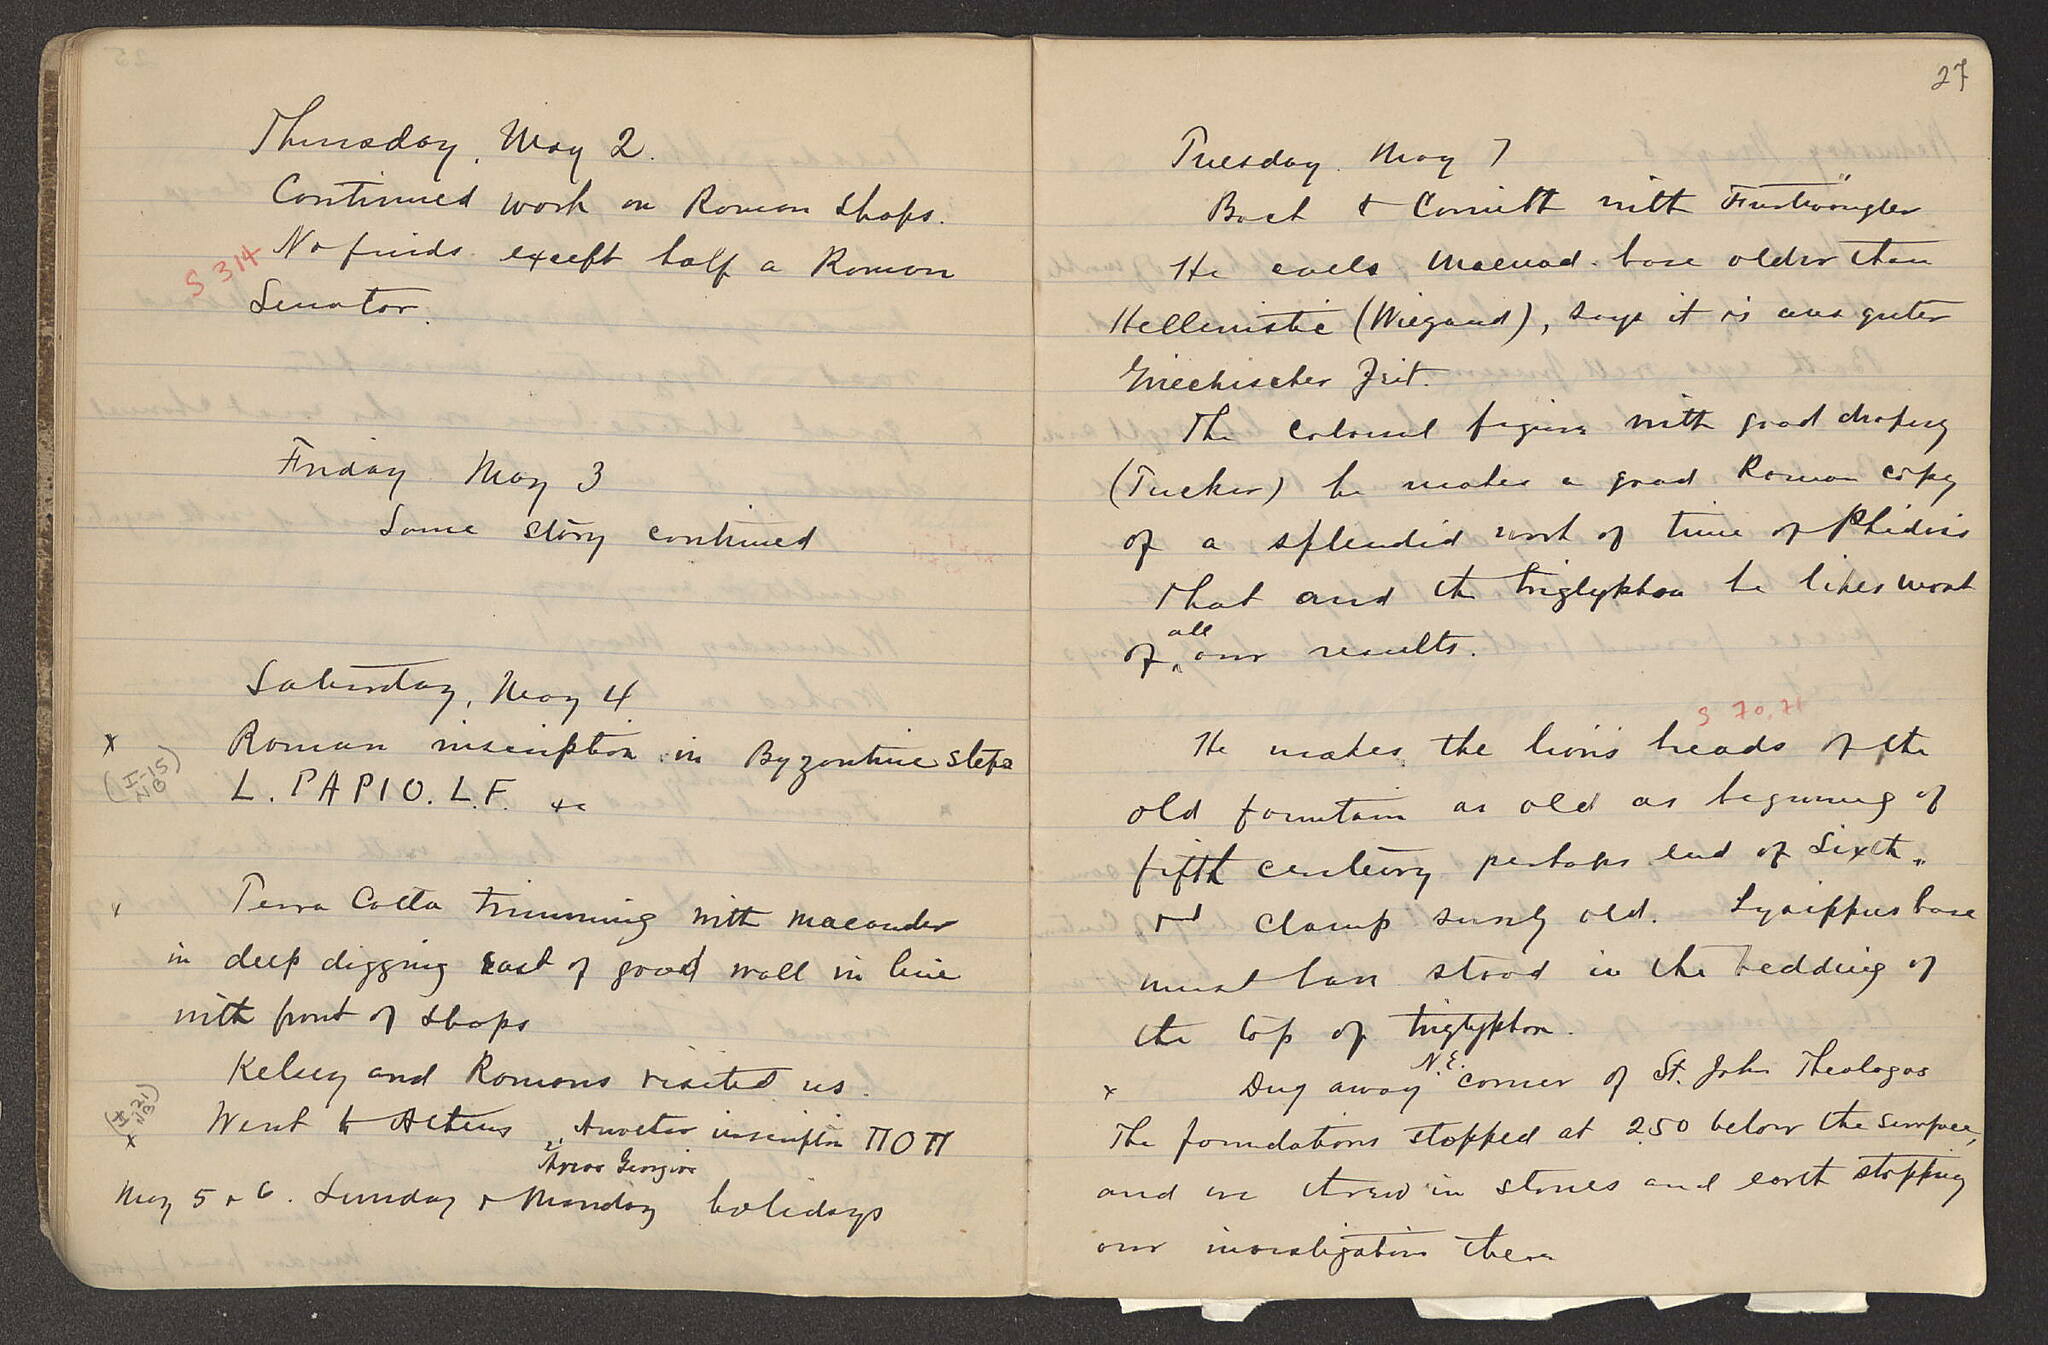 Thursday, May 2.
Continued work on Roman shops.
S 314
No finds except half a Roman
Senator.
Friday May 3
Same story continued
Saturday, May 4
x Roman inscription in Byzantine steps
(I-15 NB)
L. PAPIO. L.F. &c
x Terra Cotta trimming with maeander
in deep digging east of good wall in line
with front of shops
Kelsey and Romans visited us.
(I-21 NB)
x Went to Athens, inscription ΠΟΠ
May 5 & 6. Sunday & Monday holidays
27
Tuesday May 7
Back to Corinth with Furtwängler
He calls Maenad base older than
Hellenistic (Wiegand), says it is aus guter
Griechischer Zeit.
The colossal figure with good drapery
(Tucker) he makes a good Roman copy
of a splendid work of time of Phidias
That and the triglyphon he likes most
of all our results.
S 70, 71
He makes the lion's heads of the
old fountain as old as beginning of
fifth century perhaps end of Sixth.
clamp surely old. Lysippus base
must have stood in the bedding of
the top of triglyphon.
x Dug away N.E. corner of St. John Theologos
The foundations stopped at 2.50 below the surface,
and we threw in stones and earth stopping
our investigation there